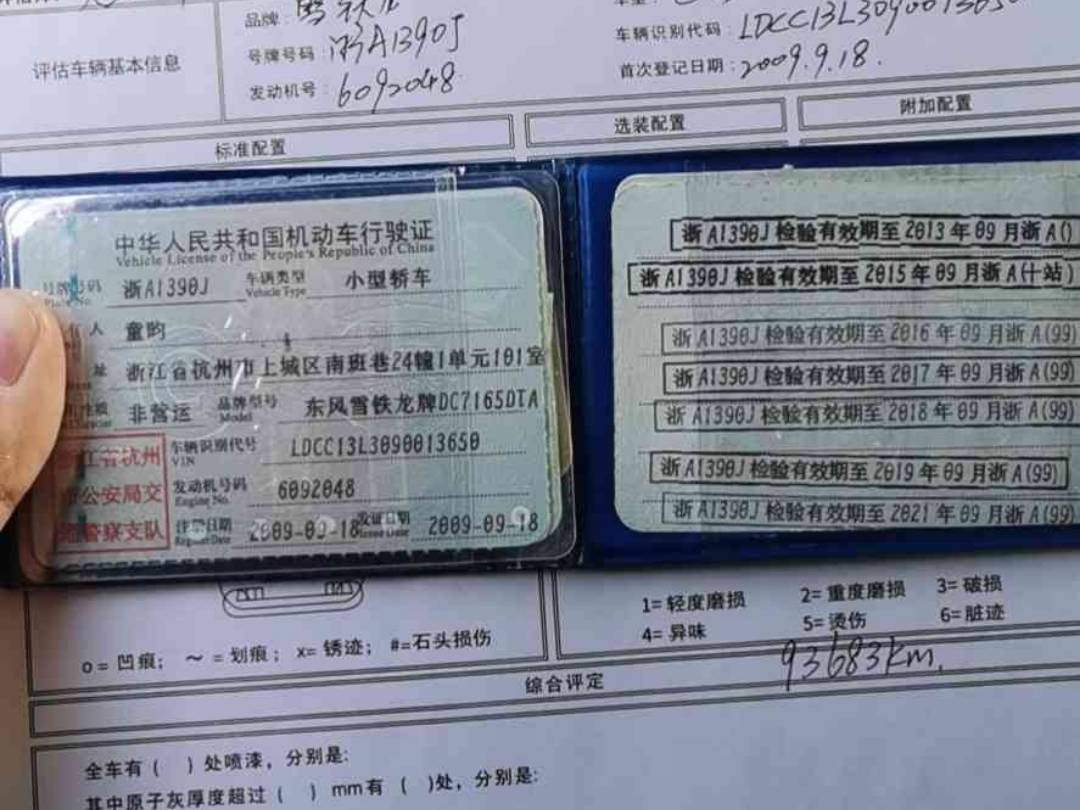 品牌：雪铁龙
号牌号码：浙A1390J
车辆识别代码：LDCC13L3090013650
评估车辆基本信息
首次登记日期：2009.9.18.
发动机号：6092048
标准配置
选装配置
附加配置
中华人民共和国机动车行驶证
Vehicle License of the People's Republic of China
号牌号码 浙A1390J 车辆类型 小型轿车
Plate No. Vehicle Type
有人 童昀
址 浙江省杭州市上城区南班巷24幢1单元101室
性质 非营运 品牌型号 东风雪铁龙牌DC7165DTA
Character Model
车辆识别代号 LDCC13L3090013650
VIN
发动机号码 6092048
Engine No.
注册日期 2009-09-18 发证日期 2009-09-18
Register Date Issue Date
江省杭州
市公安局交
通警察支队
浙A1390J检验有效期至2013年09月浙A()
浙A1390J检验有效期至2015年09月浙A(十站)
浙A1390J检验有效期至2016年09月浙A(99)
浙A1390J检验有效期至2017年09月浙A(99)
浙A1390J检验有效期至2018年09月浙A(99)
浙A1390J检验有效期至2019年09月浙A(99)
浙A1390J检验有效期至2021年09月浙A(99)
1=轻度磨损 2=重度磨损 3=破损
4=异味 5=烫伤 6=脏迹
o=凹痕； ～=划痕； x=锈迹； #=石头损伤
93683km.
综合评定
全车有（ ）处喷漆，分别是:
其中原子灰厚度超过（ ）mm有（ )处，分别是: